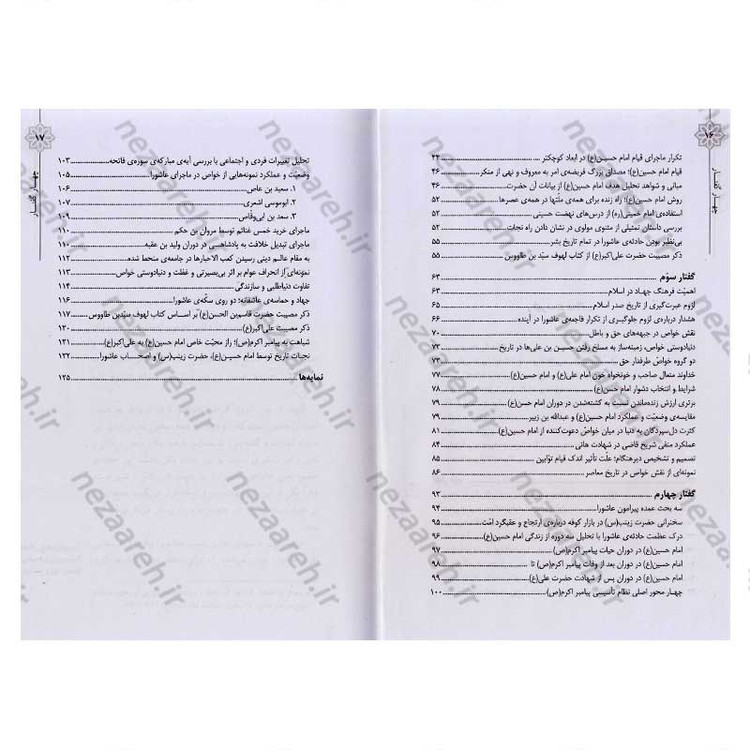 ۱۶
چهار گفتار
تکرار ماجرای قیام امام حسین(ع) در ابعاد کوچکتر ۴۴
قیام امام حسین(ع)؛ مصداق بزرگ فریضه‌ی امر به معروف و نهی از منکر ۴۶
مبانی و شواهد تحلیل هدف امام حسین(ع) از بیانات آن حضرت ۴۶
روش امام حسین(ع)؛ راه زنده برای همه‌ی ملّتها در همه‌ی عصرها ۵۲
استفاده‌ی امام خمینی(ره) از درس‌های نهضت حسینی ۵۲
بررسی داستان تمثیلی از مثنوی مولوی در نشان دادن راه نجات
بی‌نظیر بودن حادثه‌ی عاشورا در تمام تاریخ بشر ۵۵
ذکر مصیبت حضرت علی‌اکبر(ع) از کتاب لهوف سیّد بن طاووس ۵۵
گفتار سوّم ۶۳
اهمیّت فرهنگ جهاد در اسلام ۶۳
لزوم عبرت‌گیری از تاریخ صدر اسلام ۶۵
هشدار درباره‌ی لزوم جلوگیری از تکرار فاجعه‌ی عاشورا در آینده ۶۶
نقش خواص در جبهه‌های حق و باطل ۷۰
دنیادوستی خواص، زمینه‌ساز به مسلخ رفتن حسین بن علی‌ها در تاریخ ۷۳
دو گروه خواصّ طرفدار حق ۷۳
خداوند متعال صاحب و خونخواه خون امام علی(ع) و امام حسین(ع) ۷۷
شرایط و انتخاب دشوار امام حسین(ع) ۷۸
برتری ارزش زنده‌ماندن نسبت به کشته‌شدن در دوران امام حسین(ع) ۷۹
مقایسه‌ی وضعیّت و عملکرد امام حسین(ع) و عبدالله بن زبیر ۷۹
کثرت دل‌سپردگان به دنیا در میان خواصّ دعوت‌کننده از امام حسین(ع) ۸۱
عملکرد منفی شریح قاضی در شهادت هانی ۸۴
تصمیم و تشخیص دیرهنگام؛ علّت تأثیر اندک قیام توّابین ۸۵
نمونه‌ای از نقش خواص در تاریخ معاصر ۸۶
گفتار چهارم ۹۳
سه بحث عمده پیرامون عاشورا ۹۴
سخنرانی حضرت زینب(س) در بازار کوفه درباره‌ی ارتجاع و عقبگرد امّت ۹۵
درک عظمت حادثه‌ی عاشورا با تحلیل سه دوره از زندگی امام حسین(ع) ۹۶
امام حسین(ع) در دوران حیات پیامبر اکرم(ص) ۹۷
امام حسین(ع) در دوران بعد از وفات پیامبر اکرم(ص) تا ۹۸
امام حسین(ع) در دوران پس از شهادت حضرت علی(ع) ۹۹
چهار محور اصلی نظام تأسیسی پیامبر اکرم(ص) ۱۰۰
۱۷
چهار گفتار
تحلیل تغییرات فردی و اجتماعی با بررسی آیه‌ی مبارکه‌ی سوره‌ی فاتحه ۱۰۳
وضعیّت و عملکرد نمونه‌هایی از خواص در ماجرای عاشورا ۱۰۵
۱. سعید بن عاص ۱۰۶
۲. ابوموسی اشعری ۱۰۷
۳. سعد بن ابی‌وقّاص ۱۰۹
ماجرای خرید خمس غنائم توسط مروان بن حکم ۱۱۰
ماجرای تبدیل خلافت به پادشاهی در دوران ولید بن عقبه ۱۱۰
به مقام عالم دینی رسیدن کعب الاحبارها در جامعه‌ی منحط شده ۱۱۲
نمونه‌ای از انحراف عوام بر اثر بی‌بصیرتی و غفلت و دنیادوستی خواص ۱۱۳
تفاوت دنیاطلبی و سازندگی ۱۱۴
جهاد و حماسه‌ی عاشقانه؛ دو روی سکّه‌ی عاشورا ۱۱۶
ذکر مصیبت حضرت قاسم‌بن الحسن(ع) بر اساس کتاب لهوف سیّدبن طاووس ۱۱۷
ذکر مصیبت علی‌اکبر(ع) ۱۲۰
شباهت به پیامبر اکرم(ص)؛ راز محبّت خاص امام حسین(ع) به علی‌اکبر(ع) ۱۲۱
نجات تاریخ توسط امام حسین(ع)، حضرت زینب(س) و اصحاب عاشورا ۱۲۲
نمایه‌ها ۱۲۵
nezaareh.ir
nezaareh.ir
nezaareh.ir
nezaareh.ir
nezaareh.ir
nezaareh.ir